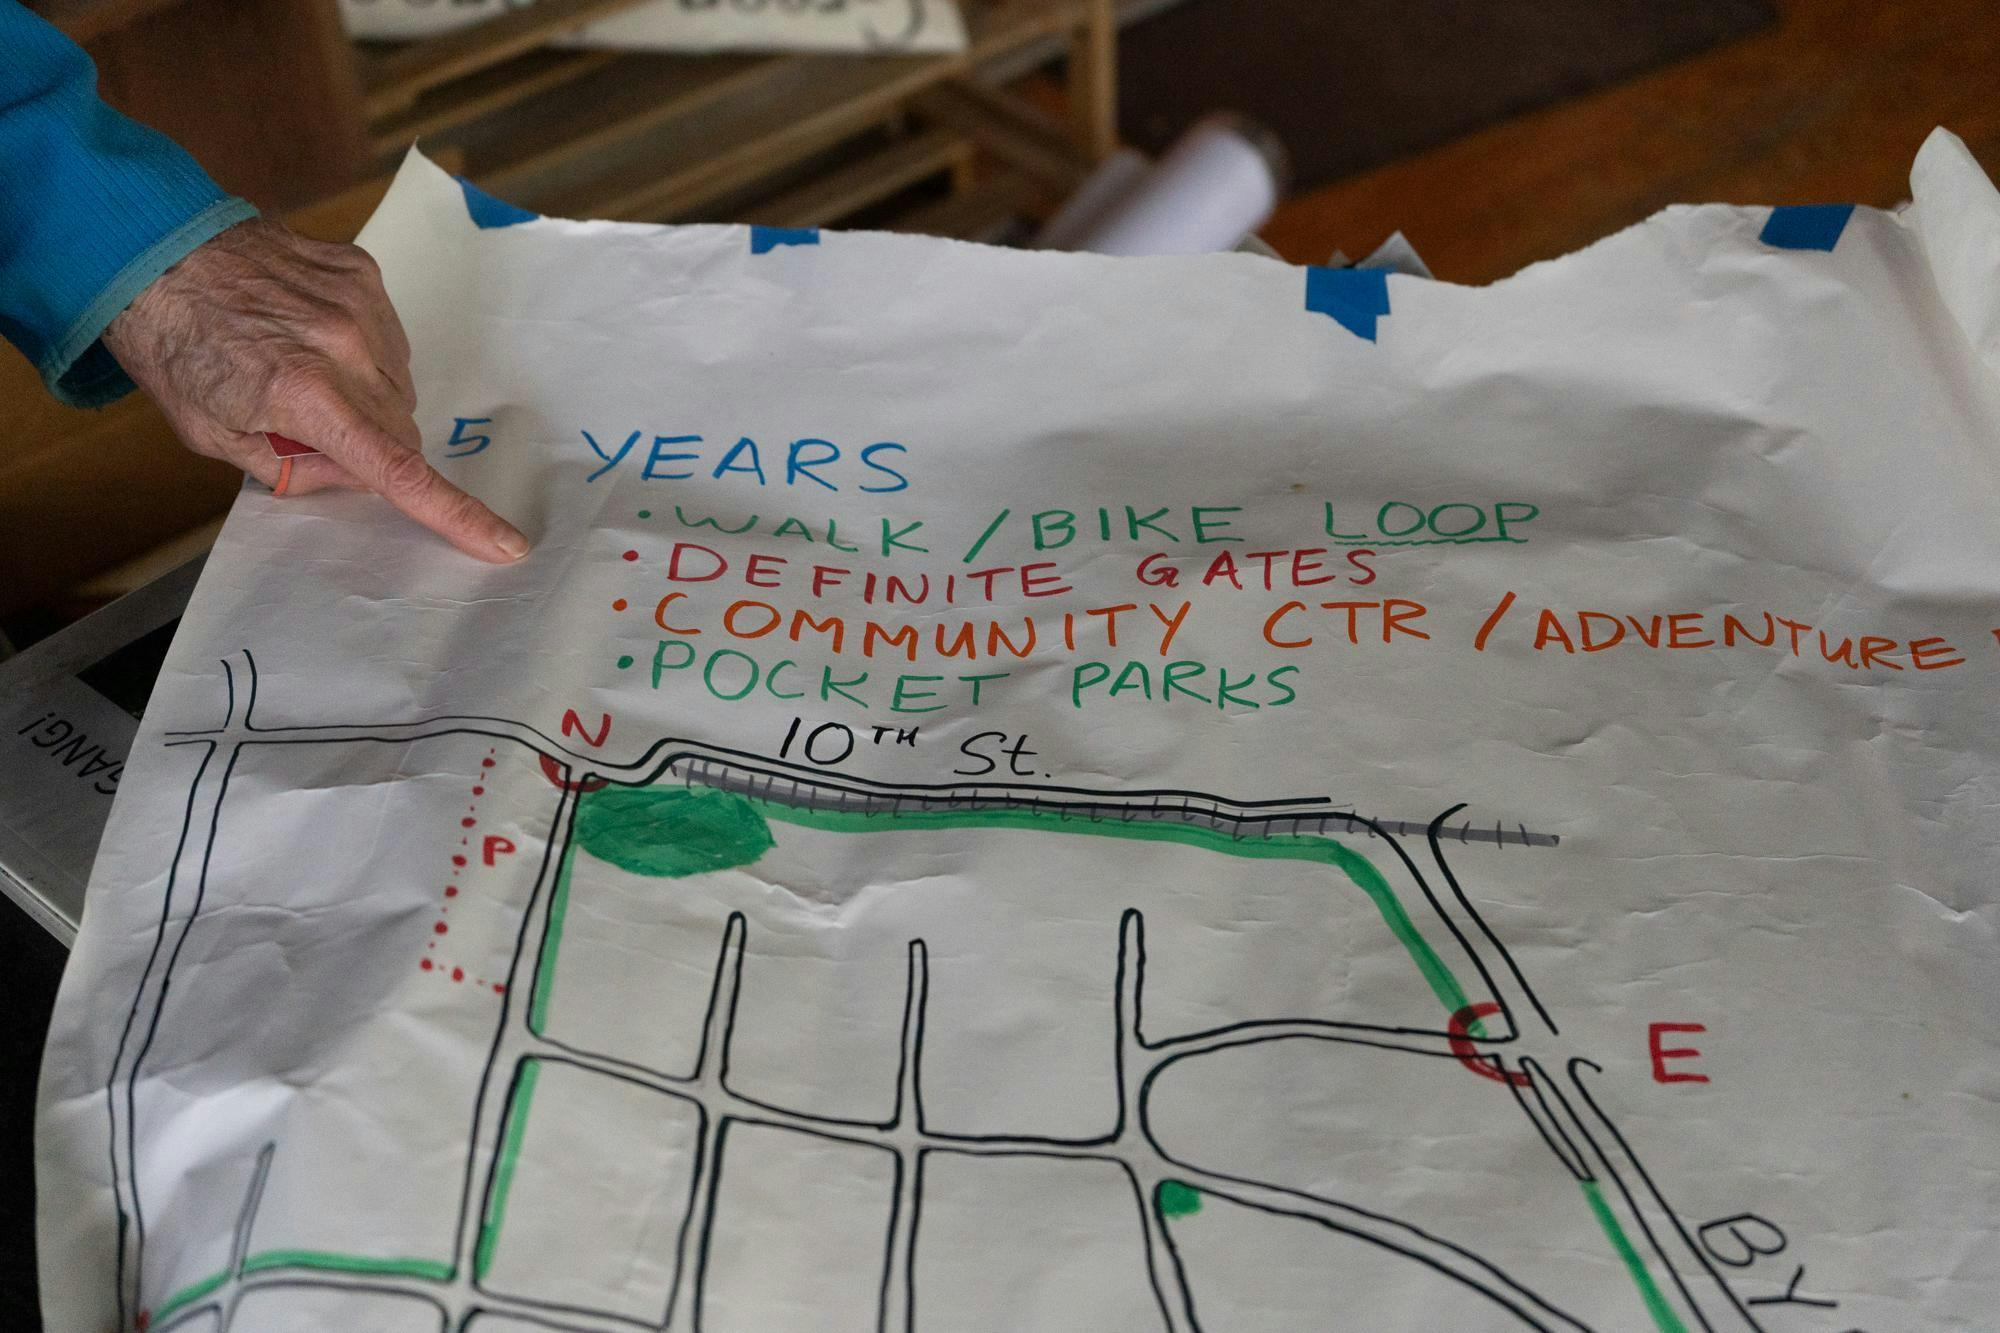 5 YEARS
• WALK / BIKE LOOP
• DEFINITE GATES
• COMMUNITY CTR / ADVENTURE
• POCKET PARKS
10TH St.
N
P
E
BY
GANG!